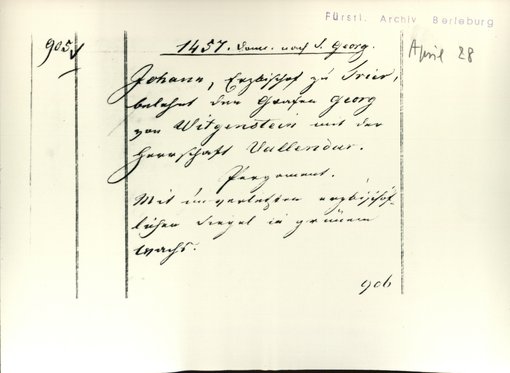 Fürstl. Archiv Berleburg
905
1457. Donn. nach S. Georg.
April 28
Johann, Erzbischof zu Trier,
belehnt den Grafen Georg
von Witgenstein mit der
Herrschaft Vallendar.
Pergament.
Mit unverletzten erzbischöf-
lichen Siegel in grünem
Wachs.
906